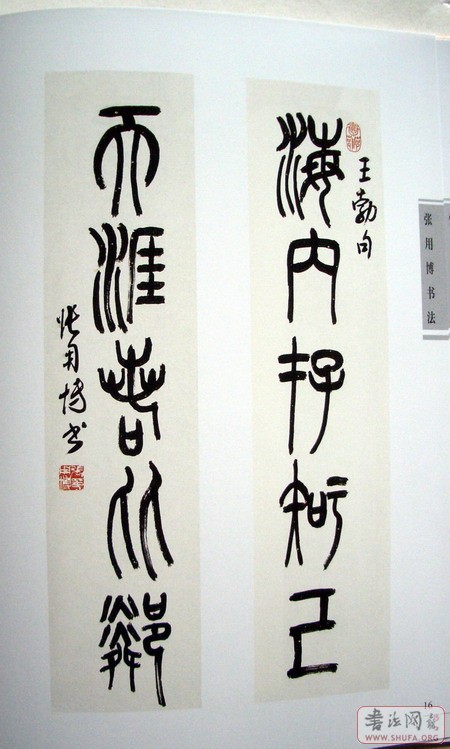 王勃句
海内存知己
天涯若比鄰
张用博书
张用博书法
16
書法网
WWW.SHUFA.ORG